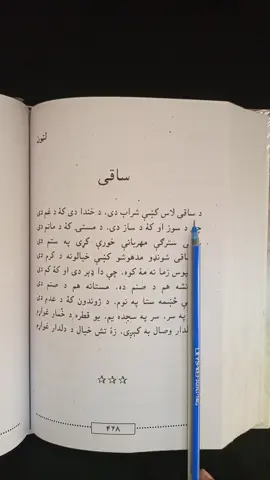 لټون
ساقی
د ساقی لاس کښې شراب دی، د خندا دی کۀ د غم دی
د سوز او کۀ د ساز دی، د مستۍ کۀ د ماتم دی
سترګې مهربانې خورې کړی په ستم دی
شونډو مدهوشو کښې خیالونه د کرم دی
زما نه مۀ کوه، چې دا ډېر دی او کۀ کم دی
هم د صنم ده، مستانه هم د صنم دی
ستا په نوم، د ژوندون کۀ د عدم دی
په سر، سر په سجده یم، یو قطره د خُمار غواړم
وصال به کېږی، زۀ تش خیال د دلدار غواړم
☆☆☆
۴۲۸